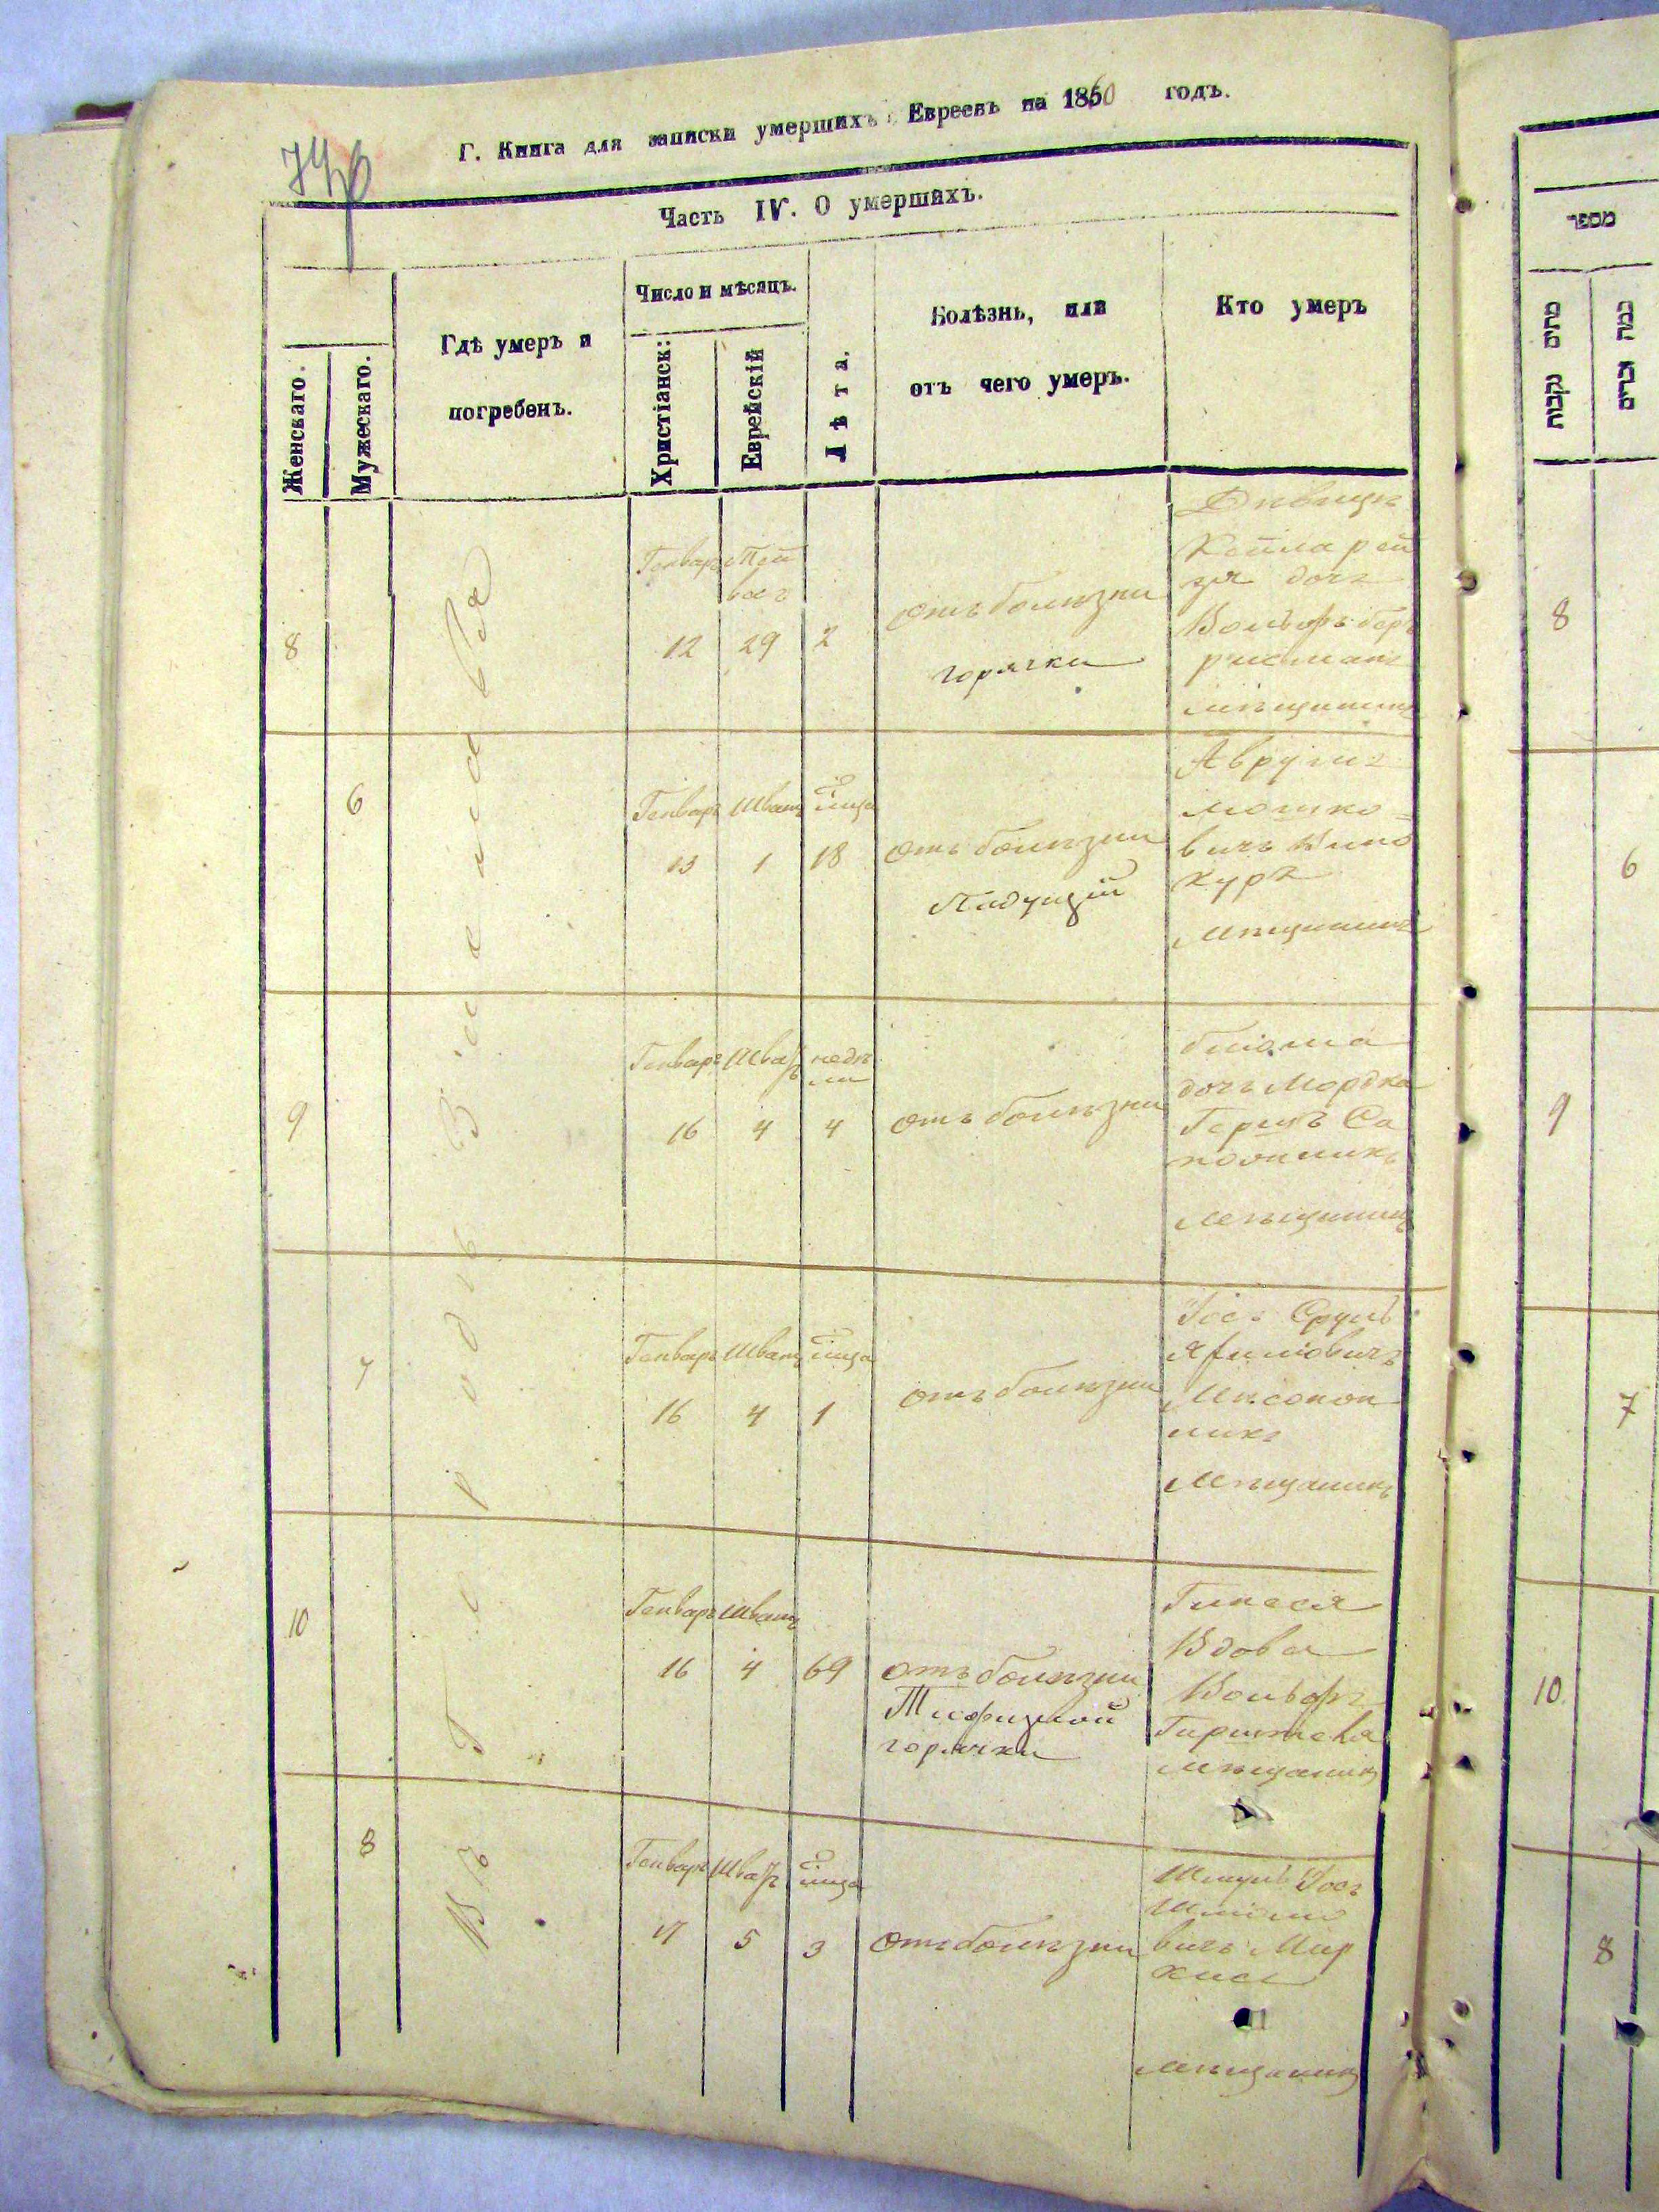 Г. Книга для записки умершихъ Евреевъ на 1860 годъ.
Часть IV. О умершихъ.
Женскаго.
Мужескаго.
Гдѣ умеръ и
погребенъ.
Число и мѣсяцъ.
Христіанск:
Еврейскій
Лѣта.
Болѣзнь, или
отъ чего умеръ.
Кто умеръ
Въ Городѣ
8
Генварь
12
Тей
весъ
29
2
отъ болѣзни
горячки
Дѣвица
Кейла рей
зя дочь
Вольфъ бер
мѣщанинъ
6
Генварь
13
Шватъ
1
18
отъ болѣзни
Падущій
Аврумъ
Мошко-
вичъ Вино
куръ
Мѣщанинъ
9
Генварь
16
Шватъ
4
недѣ
ли
4
отъ болѣзни
дочь Мордка
Гершъ Са
пожникъ
Мѣщанинъ
7
Генварь
16
Шватъ
4
1
отъ болѣзни
Іось Сруль
Мѣщанинъ
10
Генварь
16
Шватъ
4
69
отъ болѣзни
Тифозной
горячки
Вдова
Вольфъ
мѣщанинъ
8
Генварь
17
Шватъ
5
3
отъ болѣзни
Шмуль Іось
вичъ Мир
кисъ
мѣщанинъ
מספר
מתים נקבות
כמה זכרים
8
6
9
7
10
8